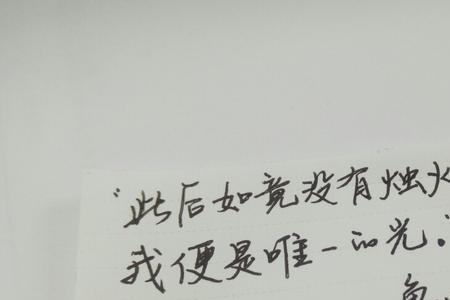 “此后如竟没有烛火
我便是唯一的光.